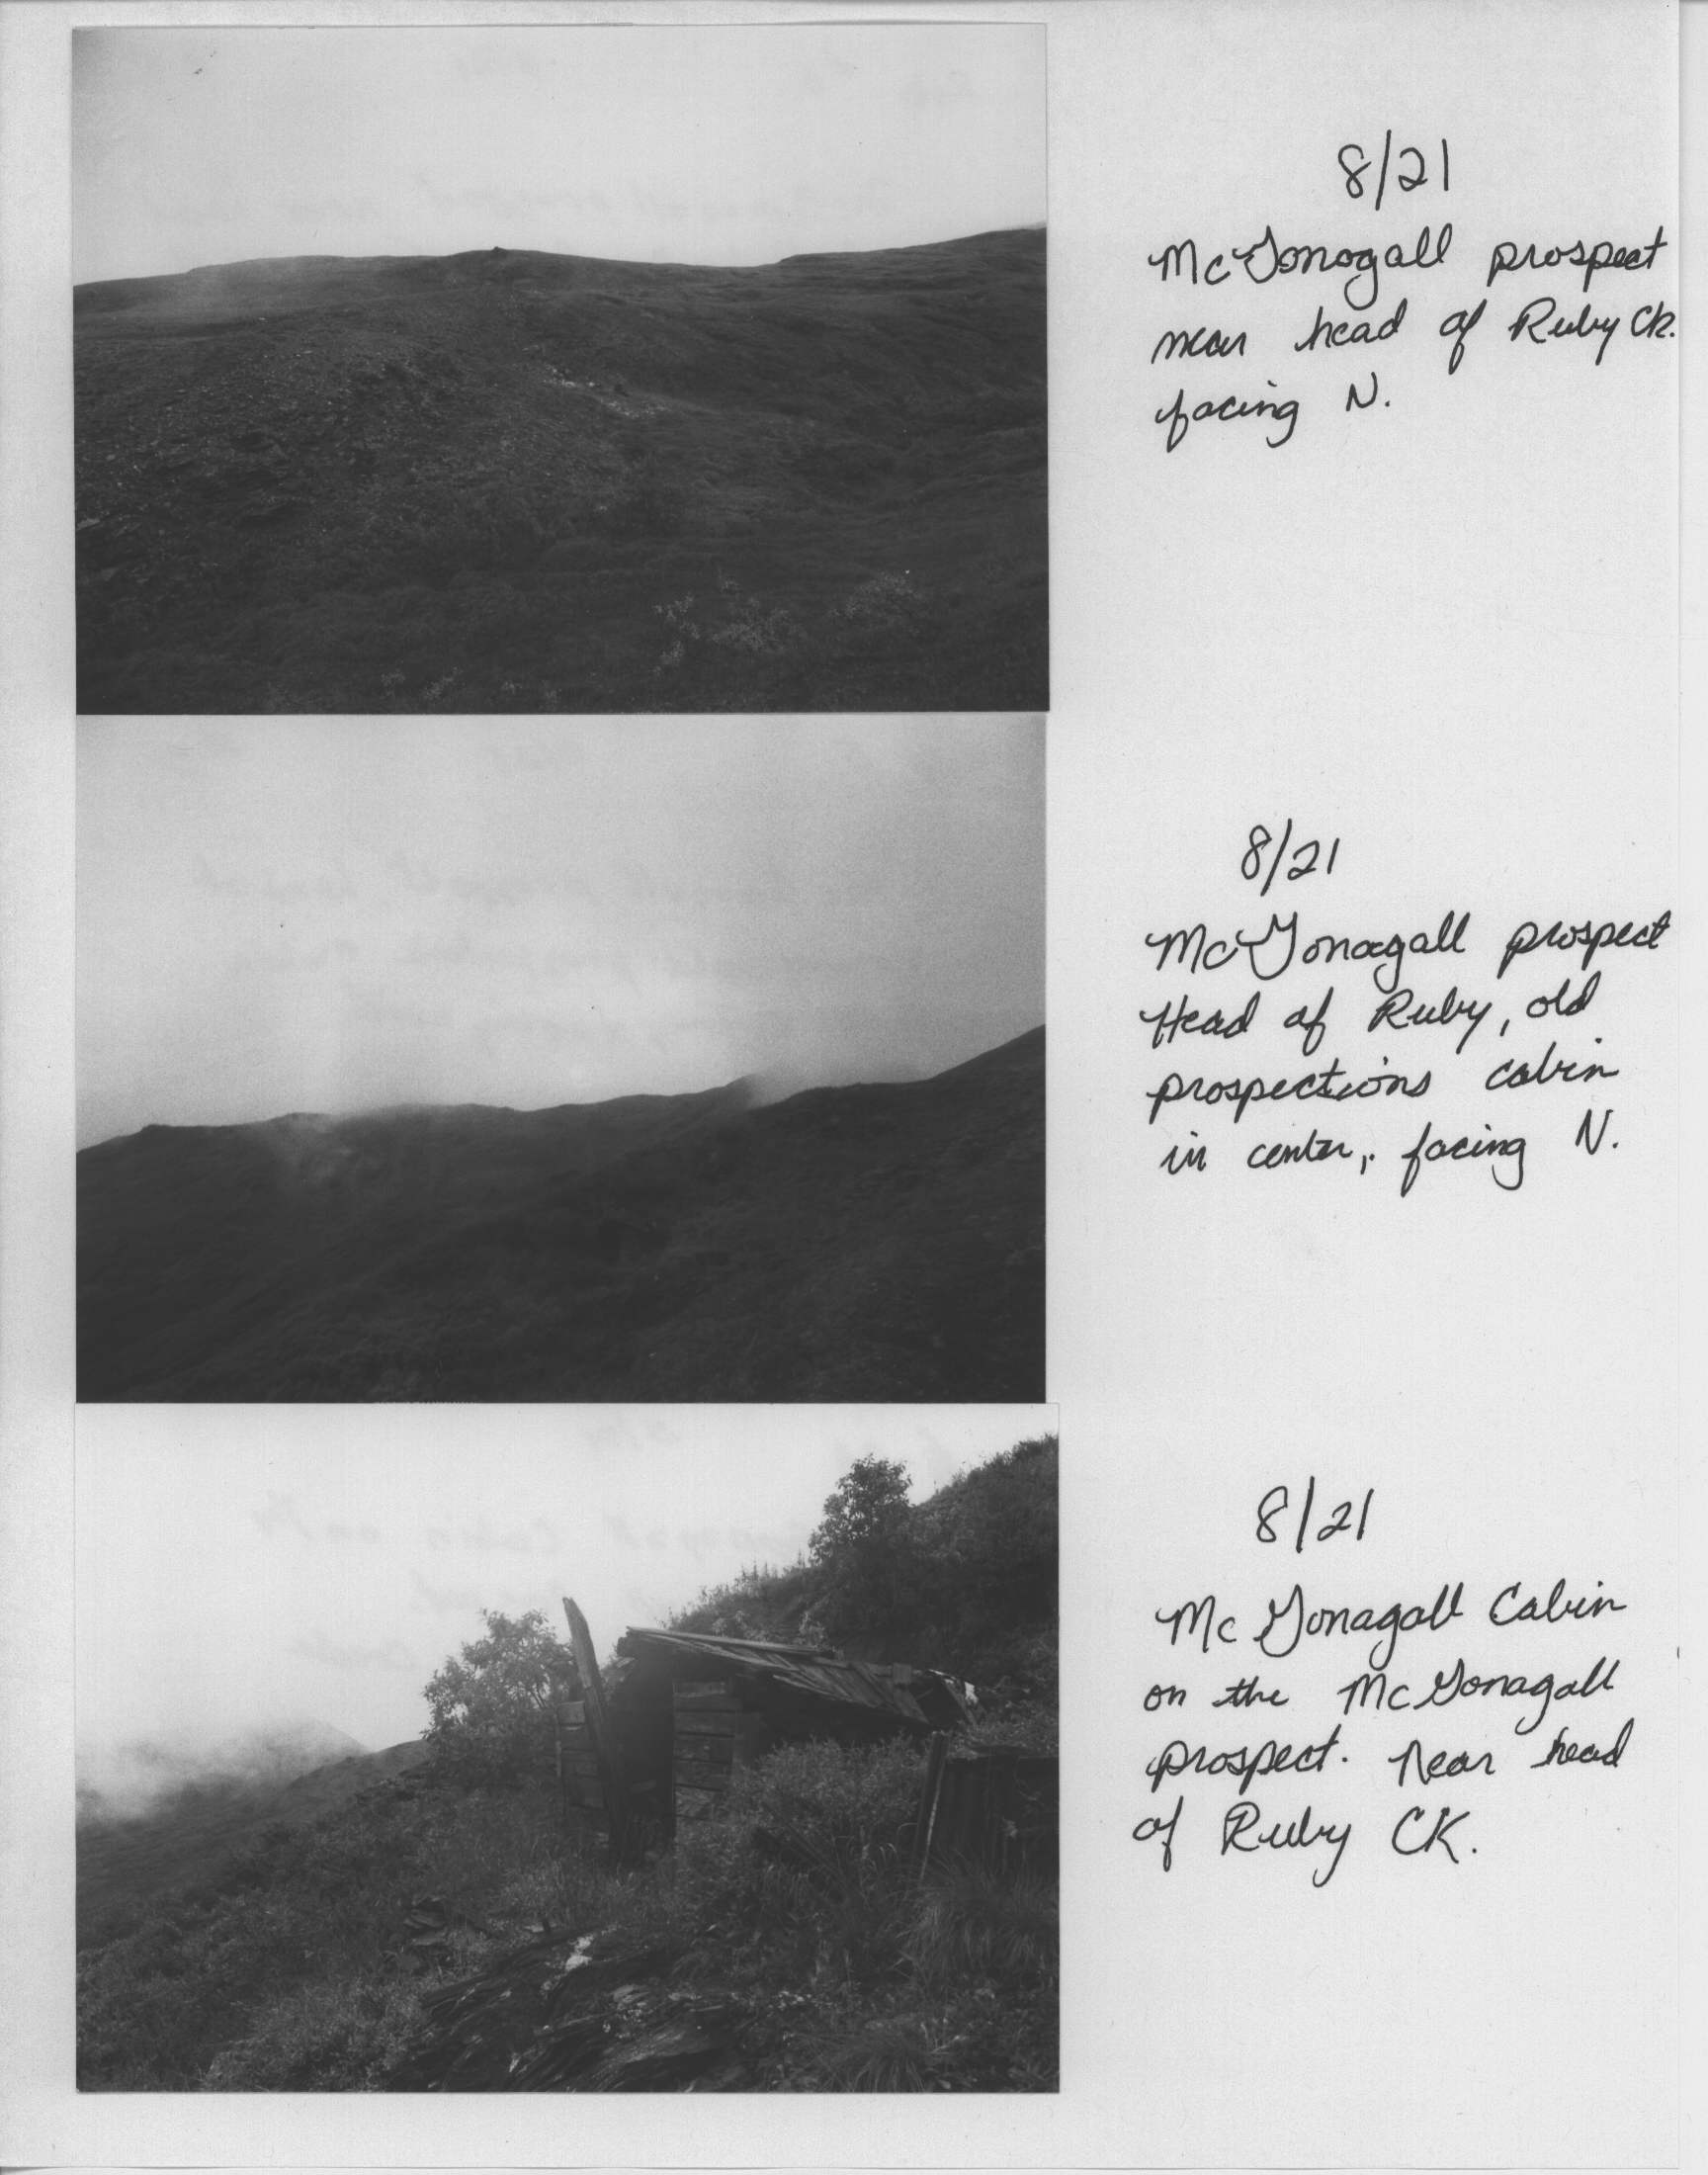 8/21
McGonogall prospect
near head of Ruby Ck.
facing N.
8/21
McGonagall prospect
Head of Ruby, old
prospections cabin
in center, facing N.
8/21
McGonagall Cabin
on the McGonagall
prospect. Near head
of Ruby CK.